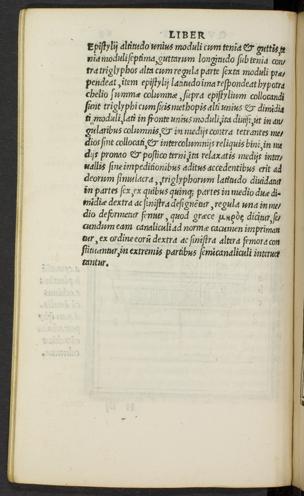 LIBER
Epistylij altitudo unius moduli cum tenia & guttis, te
nia moduli septima, guttarum longitudo sub tenia con
tra triglyphos alta cum regula parte sexta moduli præ
pendeat, item epistylij latitudo ima respondeat hypotra
chelio summæ columnæ, supra epistylium collocandi
sunt triglyphi cum suis methopis alti unius & dimidia
ti moduli, lati in fronte unius moduli, ita diuisi, ut in an
gularibus columnis, & in medijs contra tetrantes me/
dios sint collocati, & intercolumnijs reliquis bini, in me
dijs pronao & postico terni, ita relaxatis medijs inter/
uallis sine impeditionibus aditus accedentibus erit ad
deorum simulacra, triglyphorum latitudo diuidatur
in partes sex, ex quibus quinq; partes in medio duæ di-
midiæ dextra ac sinistra designetur, regula una in me/
dio deformetur femur, quod græce μηρὸς dicitur, se/
cundum eam canaliculi ad normæ cacumen impriman
tur, ex ordine eorũ dextra ac sinistra altera femora con
stituantur, in extremis partibus semicanaliculi intercer
tantur.